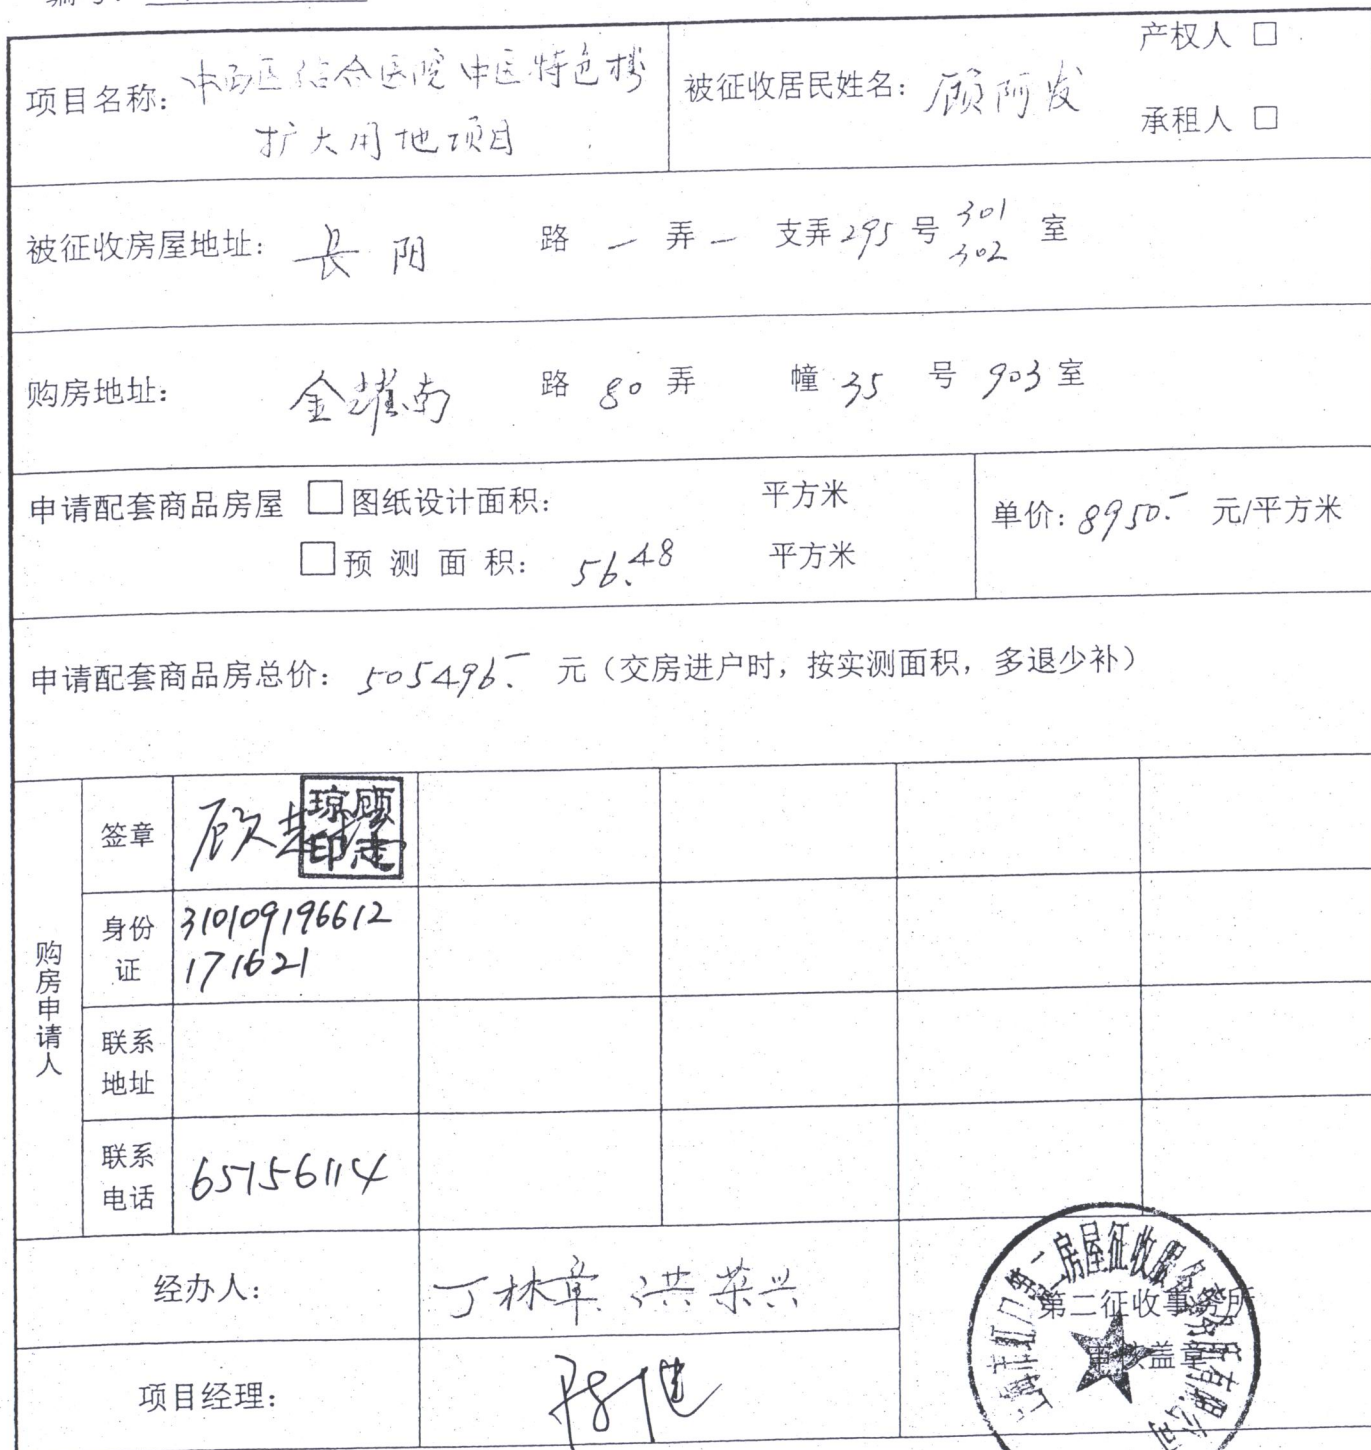 编号:
项目名称: 中西医结合医院中医特色楼
扩大用地项目
被征收居民姓名: 顾阿发
产权人 □
承租人 □
被征收房屋地址: 长阳 路 一 弄 一 支弄 295 号 301 302 室
购房地址: 金 南 路 80 弄 幢 35 号 903 室
申请配套商品房屋 □图纸设计面积: 平方米
□预 测 面 积: 56.48 平方米
单价: 8950.- 元/平方米
申请配套商品房总价: 505496.- 元（交房进户时，按实测面积，多退少补）
购房申请人
签章 顾志琼
顾志琼印
身份证 310109196612
171621
联系地址
联系电话 65156114
经办人: 丁林章 洪荣兴
第二征收事务所
审核盖章
上海市虹口第二房屋征收服务事务所有限公司
项目经理: